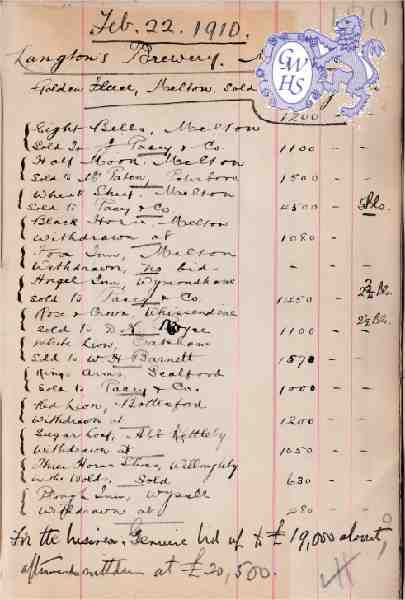 Feb. 22. 1910.
Langton's Brewery.
Golden Fleece, Melton sold
1200 - -
Eight Bells, Melton
Sold to Pacey & Co 1100 - -
Half Moon, Melton
Sold to Mr Paton, 1500 - -
Wheat Sheaf, Melton
Sold to Pacey & Co 4500 - -
Black Horse, Melton
Withdrawn at 1080 - -
Fox Inn, Melton
Withdrawn, no bid - - -
Angel Inn, Wymondham
Sold to Pacey & Co. 1250 - -
Rose & Crown, Whissendine
Sold to D. N. Royce 1100 - -
White Lion, Oakham
Sold to W H Barnett 1570 - -
Kings Arms, Scalford
Sold to Pacey & Co. 1000 - -
Red Lion, Bottesford
Withdrawn at 1200 - -
Sugar Loaf, Ab Kettleby
Withdrawn at 1050 - -
Three Horse Shoes, Willoughby
in the Wolds, Sold 630 - -
Plough Inn, Wysall
Withdrawn at - -
For the business, Genuine bid of £19,000 about,
afterwards withdrawn at £20,500.
GWHS